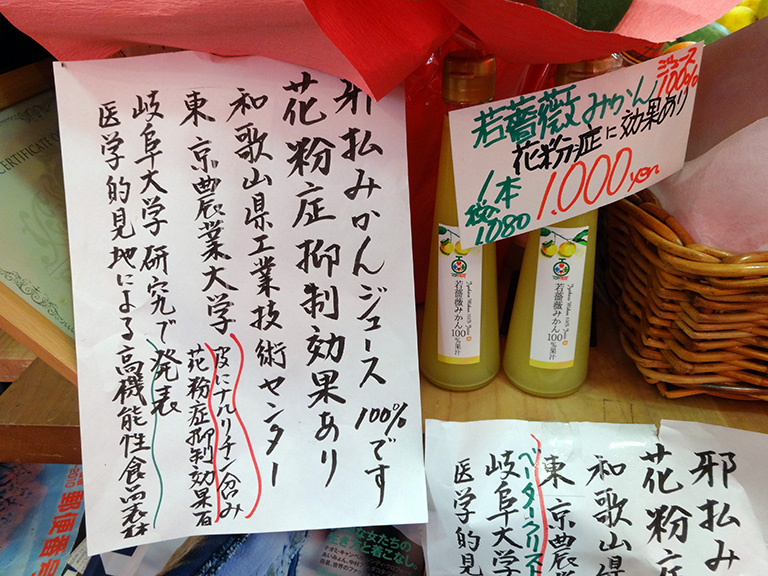 邪払みかんジュース100%です
花粉症抑制効果あり
和歌山県工業技術センター
東京農業大学
皮にナルリチン含み
花粉症抑制効果有
岐阜大学研究で発表
医学的見地による高機能性食品素材
若薔薇みかんジュース100%
花粉症に効果あり
1本
1.000yen
税1080
若薔薇みかん100%果汁
若薔薇みかん100%果汁
邪払み
花粉症
和歌山
東京農
ベータークリプト
岐阜大学
医学的見
CERTIFICATE O
郵便番号
な女たちの
生きざまと着こなし。